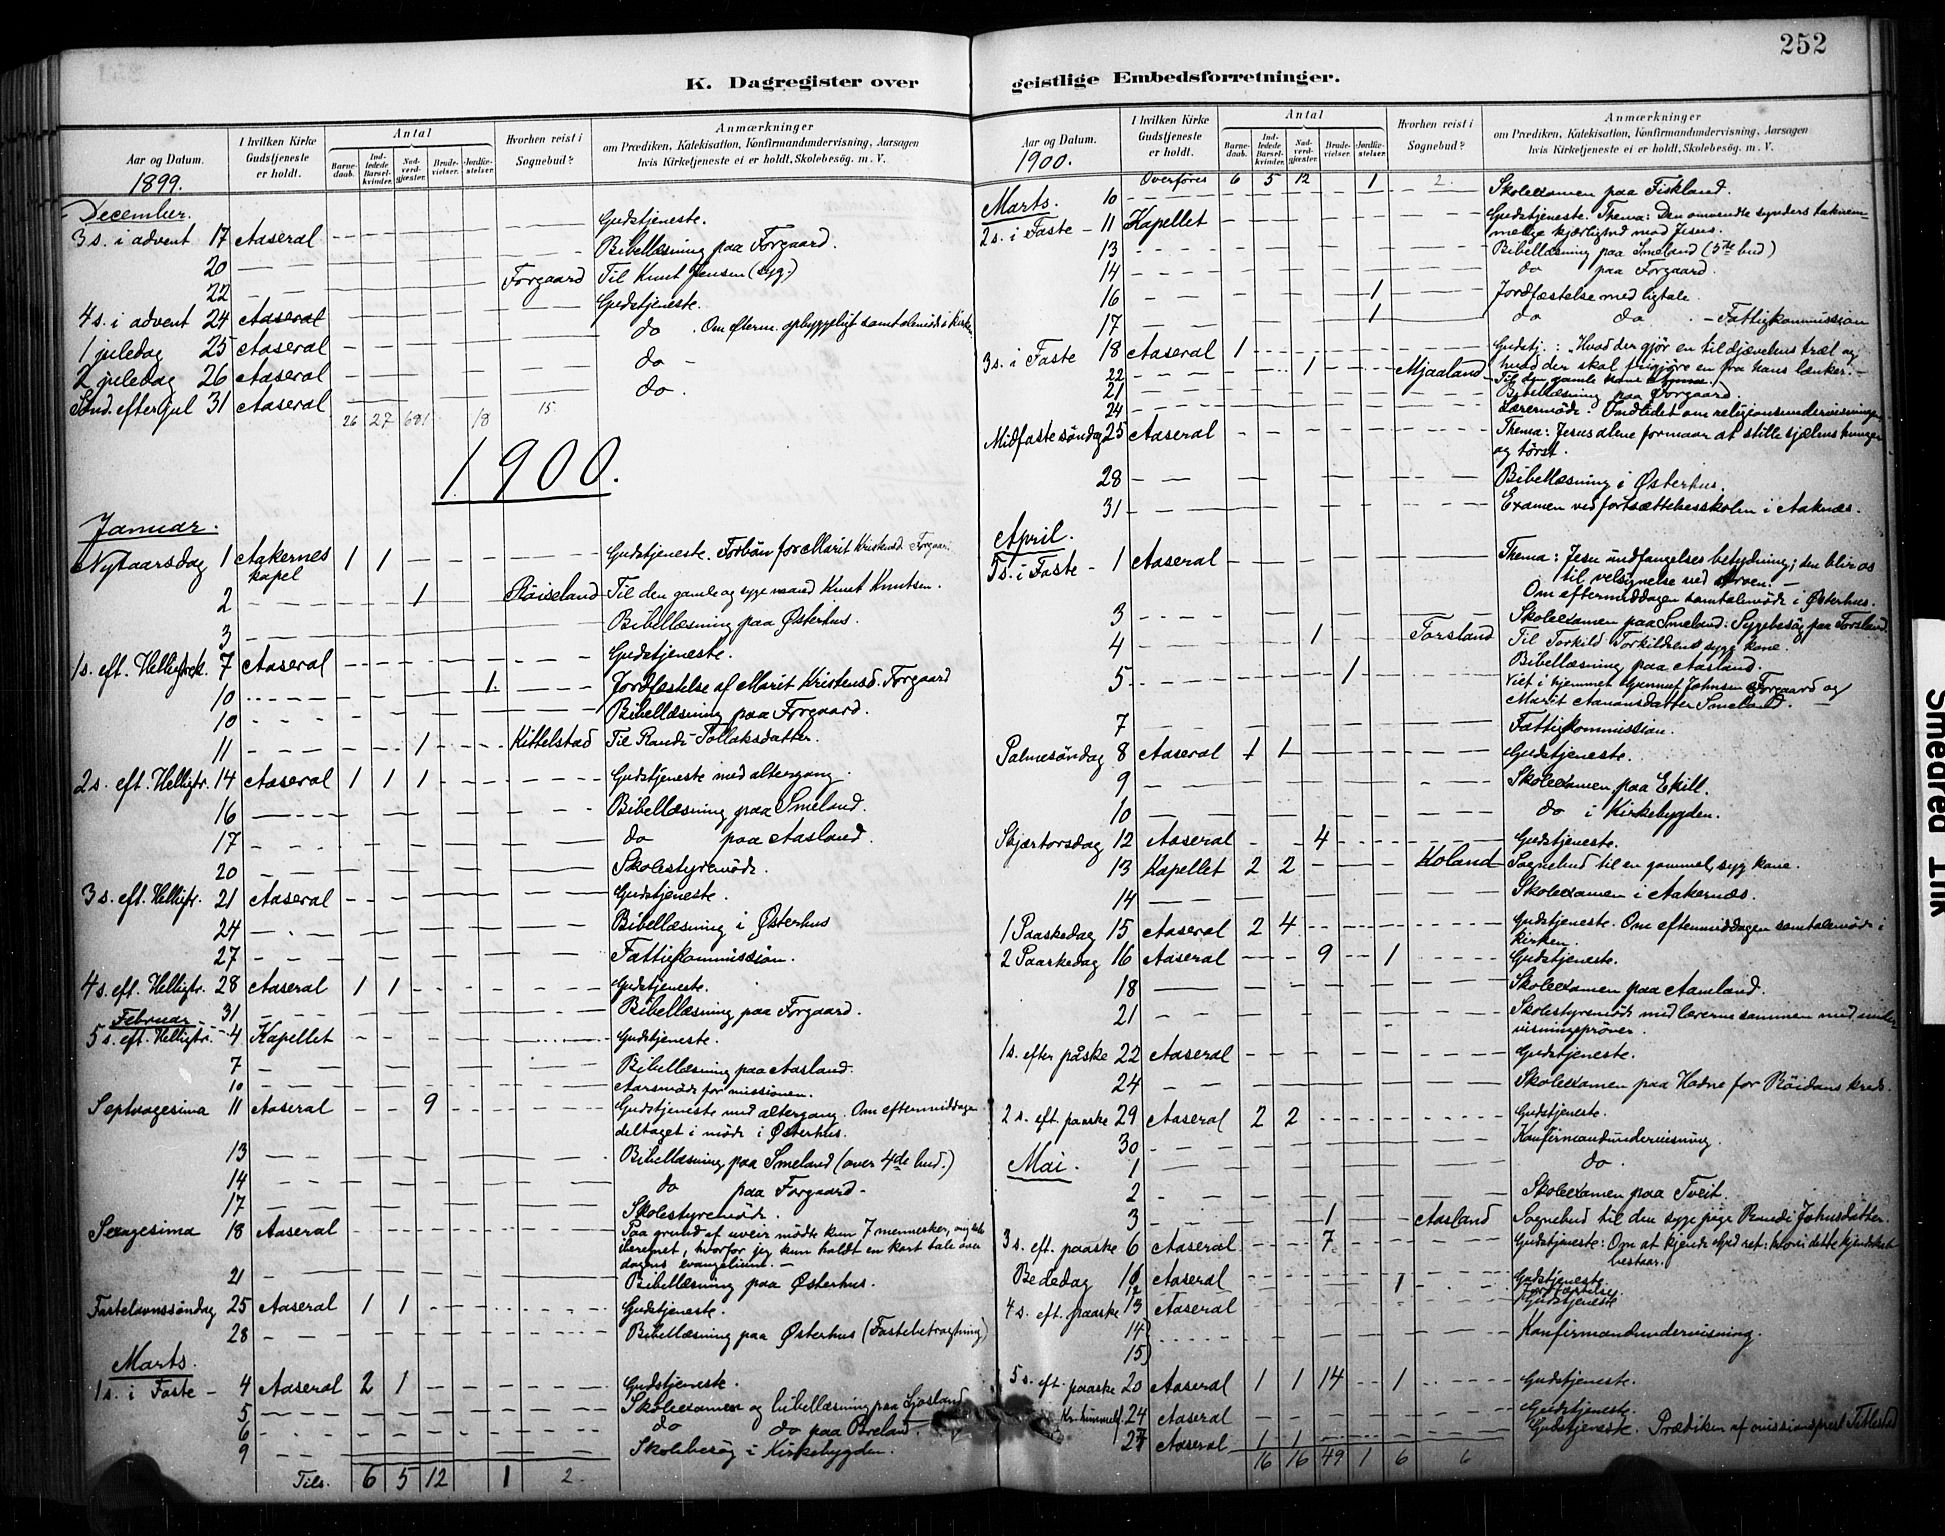 252
K. Dagregister over
geistlige Embedsforretninger.
Aar og Datum.
1899.
I hvilken Kirke Gudstjeneste er holdt.
Antal
Barne-daab.
Ind-ledede Barsel-kvinder.
Nad-verd-gjæster.
Brude-vielser.
Jordfæ-stelser.
Hvorhen reist i Sognebud?
Anmærkninger
om Prædiken, Katekisation, Konfirmandundervisning, Aarsagen
hvis Kirketjeneste ei er holdt, Skolebesøg. m. V.
December.
3 s. i advent 17 Aaseral Gudstjeneste.
20 Bibellæsning paa Forgaard.
22 Forgaard Til Knut Jensen (syg.)
4 s. i advent 24 Aaseral Gudstjeneste.
1 juledag 25 Aaseral do. Om efterm. opbyggeligt samtalemøde i Kirken
2 juledag 26 Aaseral do
Sönd. efter jul 31 Aaseral do.
26 27 691 18 15.
1900.
Januar.
Nytaarsdag 1 Aakernes kapel 1 1 Gudstjeneste. Forbön for Marit Kristensd. Forgaard
2 1 Röiseland Til den gamle og syge mand Knut Knutsen.
3 Bibellæsning paa Østerhus.
1 s. eft. Helligtrek. 7 Aaseral Gudstjeneste.
10 1. Jordfæstelse af Marit Kristensd. Forgaard
10 Bibellæsning paa Forgaard.
11 1 Kittelstad Til Randi Tollaksdatter.
2 s. eft. Helligtr. 14 Aaseral 1 1 1 Gudstjeneste med altergang.
16 Bibellæsning paa Smeland.
17 do paa Aasland.
20 Skolestyremöde.
3 s. eft. Helligtr. 21 Aaseral Gudstjeneste.
24 Bibellæsning i Østerhus
27 Fattigkommission.
4 s. eft. Helligtr. 28 Aaseral 1 1 Gudstjeneste.
31 Bibellæsning paa Forgaard.
Februar
5 s. eft. Helligtr. 4 Kapellet Gudstjeneste.
7 Bibellæsning paa Aasland.
10 Aarsmöde for missionen.
Septuagesima 11 Aaseral 9 Gudstjeneste med altergang. Om eftermiddagen
deltaget i möde i Østerhus.
13 Bibellæsning paa Smeland (over 4de bud.)
14 do paa Forgaard.
17 Skolestyremöde.
Sexagesima 18 Aaseral Paa grund af uveir mödte kun 7 mennesker,
hvorfor jeg kun holdt en kort tale over
dagens evangelium.
21 Bibellæsning paa Østerhus.
Fastelavnssöndag 25 Aaseral 1 1 Gudstjeneste.
28 Bibellæsning paa Østerhus (Fastebetragtning)
Marts.
1 s. i Faste 4 Aaseral 2 1 Gudstjeneste.
5 Skolexamen og bibellæsning paa Ljosland
6 do do paa Breland.
9 Skolebesøg i Kirkebygden.
Tils. 6 5 12 1 2.
Aar og Datum.
1900.
I hvilken Kirke Gudstjeneste er holdt.
Antal
Barne-daab.
Ind-ledede Barsel-kvinder.
Nad-verd-gjæster.
Brude-vielser.
Jordfæ-stelser.
Hvorhen reist i Sognebud?
Anmærkninger
om Prædiken, Katekisation, Konfirmandundervisning, Aarsagen
hvis Kirketjeneste ei er holdt, Skolebesøg. m. V.
Overføres 6 5 12 1 2.
Marts. 10 Skolexamen paa Fiskland.
2 s. i Faste 11 Kapellet Gudstjeneste. Thema: Den omvendte synders taknem-
melige kjærlighed mod Jesus.
13 Bibellæsning paa Smeland (5te bud)
14 do paa Forgaard.
16 1 Jordfæstelse med ligtale.
17 1 do do. - Fattigkommission
3 s. i Faste 18 Aaseral 1 Gudstj.: "Hvad der gjør en til djævelens træl og
hvad der skal frigjöre en fra hans lænker.
22 1 Mjaaland Til den gamle kone
21 Bibellæsning paa Forgaard.
24 Lærermöde. Indledet om religionsundervisningen
Midfastesöndag 25 Aaseral Thema: Jesus alene formaar at stille sjælens hunger
og törst.
28 Bibellæsning i Østerhus.
31 Examen ved fortsættelsesskolen i Aaknæs.
April.
5 s. i Faste 1 Aaseral Thema: Jesu undfangelses betydning; den blir os
til velsignelse ved troen.
Om eftermiddagen samtalemöde i Østerhus.
3 Skolexamen paa Smeland. Sygebesøg paa Forsland.
4 1 Forsland Til Torkild Torkildsens syge kone.
Bibellæsning paa Aasland.
5 1 Viet i hjemmet Gunnuf Johnsen Forgaard og
Marit Aanonsdatter Smeland.
7 Fattigkommission.
Palmesöndag 8 Aaseral 1 1 Gudstjeneste.
9 Skolexamen paa Ekill.
10 do i Kirkebygden.
Skjærtorsdag 12 Aaseral 4 Gudstjeneste.
13 Kapellet 2 2 Koland Sognebud til en gammel, syg kone.
14 Skolexamen i Aakernæs.
1 Paaskedag 15 Aaseral 2 4 Gudstjeneste. Om eftermiddagen samtalemöde i
kirken.
2 Paaskedag 16 Aaseral 9 1 Gudstjeneste.
18 Skolexamen paa Aamland.
21 Skolestyremöde med lærerne sammen med under-
visningsprøver.
1 s. efter påske 22 Aaseral Gudstjeneste.
24 Skolexamen paa Hadne for Röidans kreds.
2 s. eft. paaske 29 Aaseral 2 2 Gudstjeneste.
30 Konfirmandundervisning.
Mai. 1 do.
2 Skolexamen paa Tveit.
3 1 Aasland Sognebud til den syge pige Randi Johnsdatter.
3 s. eft. paaske 6 Aaseral 7 Gudstjeneste: Om at kjende Gud ret: hvori dette kjendskab
bestaar.
Bededag 11 Aaseral Gudstjeneste.
12 1 Jordfæstelse.
4 s. eft. paaske 13 Aaseral Gudstjeneste
14
15) Konfirmandundervisning.
5 s. eft. paaske 20 Aaseral 1 1 14 1 Gudstjeneste.
Kr. himmelf. 24 Aaseral Gudstjeneste.
27 Aaseral 1 1 Gudstjeneste. Prædiken af missionsprest Titlestad
16 16 49 1 6 6
Smeared Ink